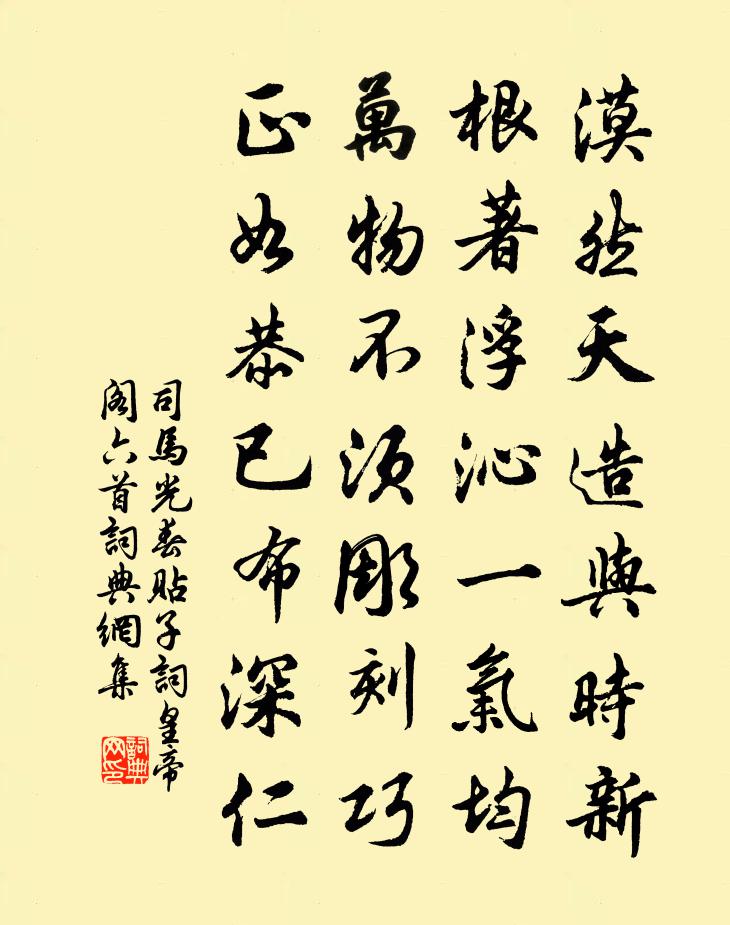 漠然天造與時新
根著浮沁一氣均
萬物不須彫刻巧
正如恭已布深仁
司馬光春貼子詞皇帝
閣六首詞典網集
詞典
网印